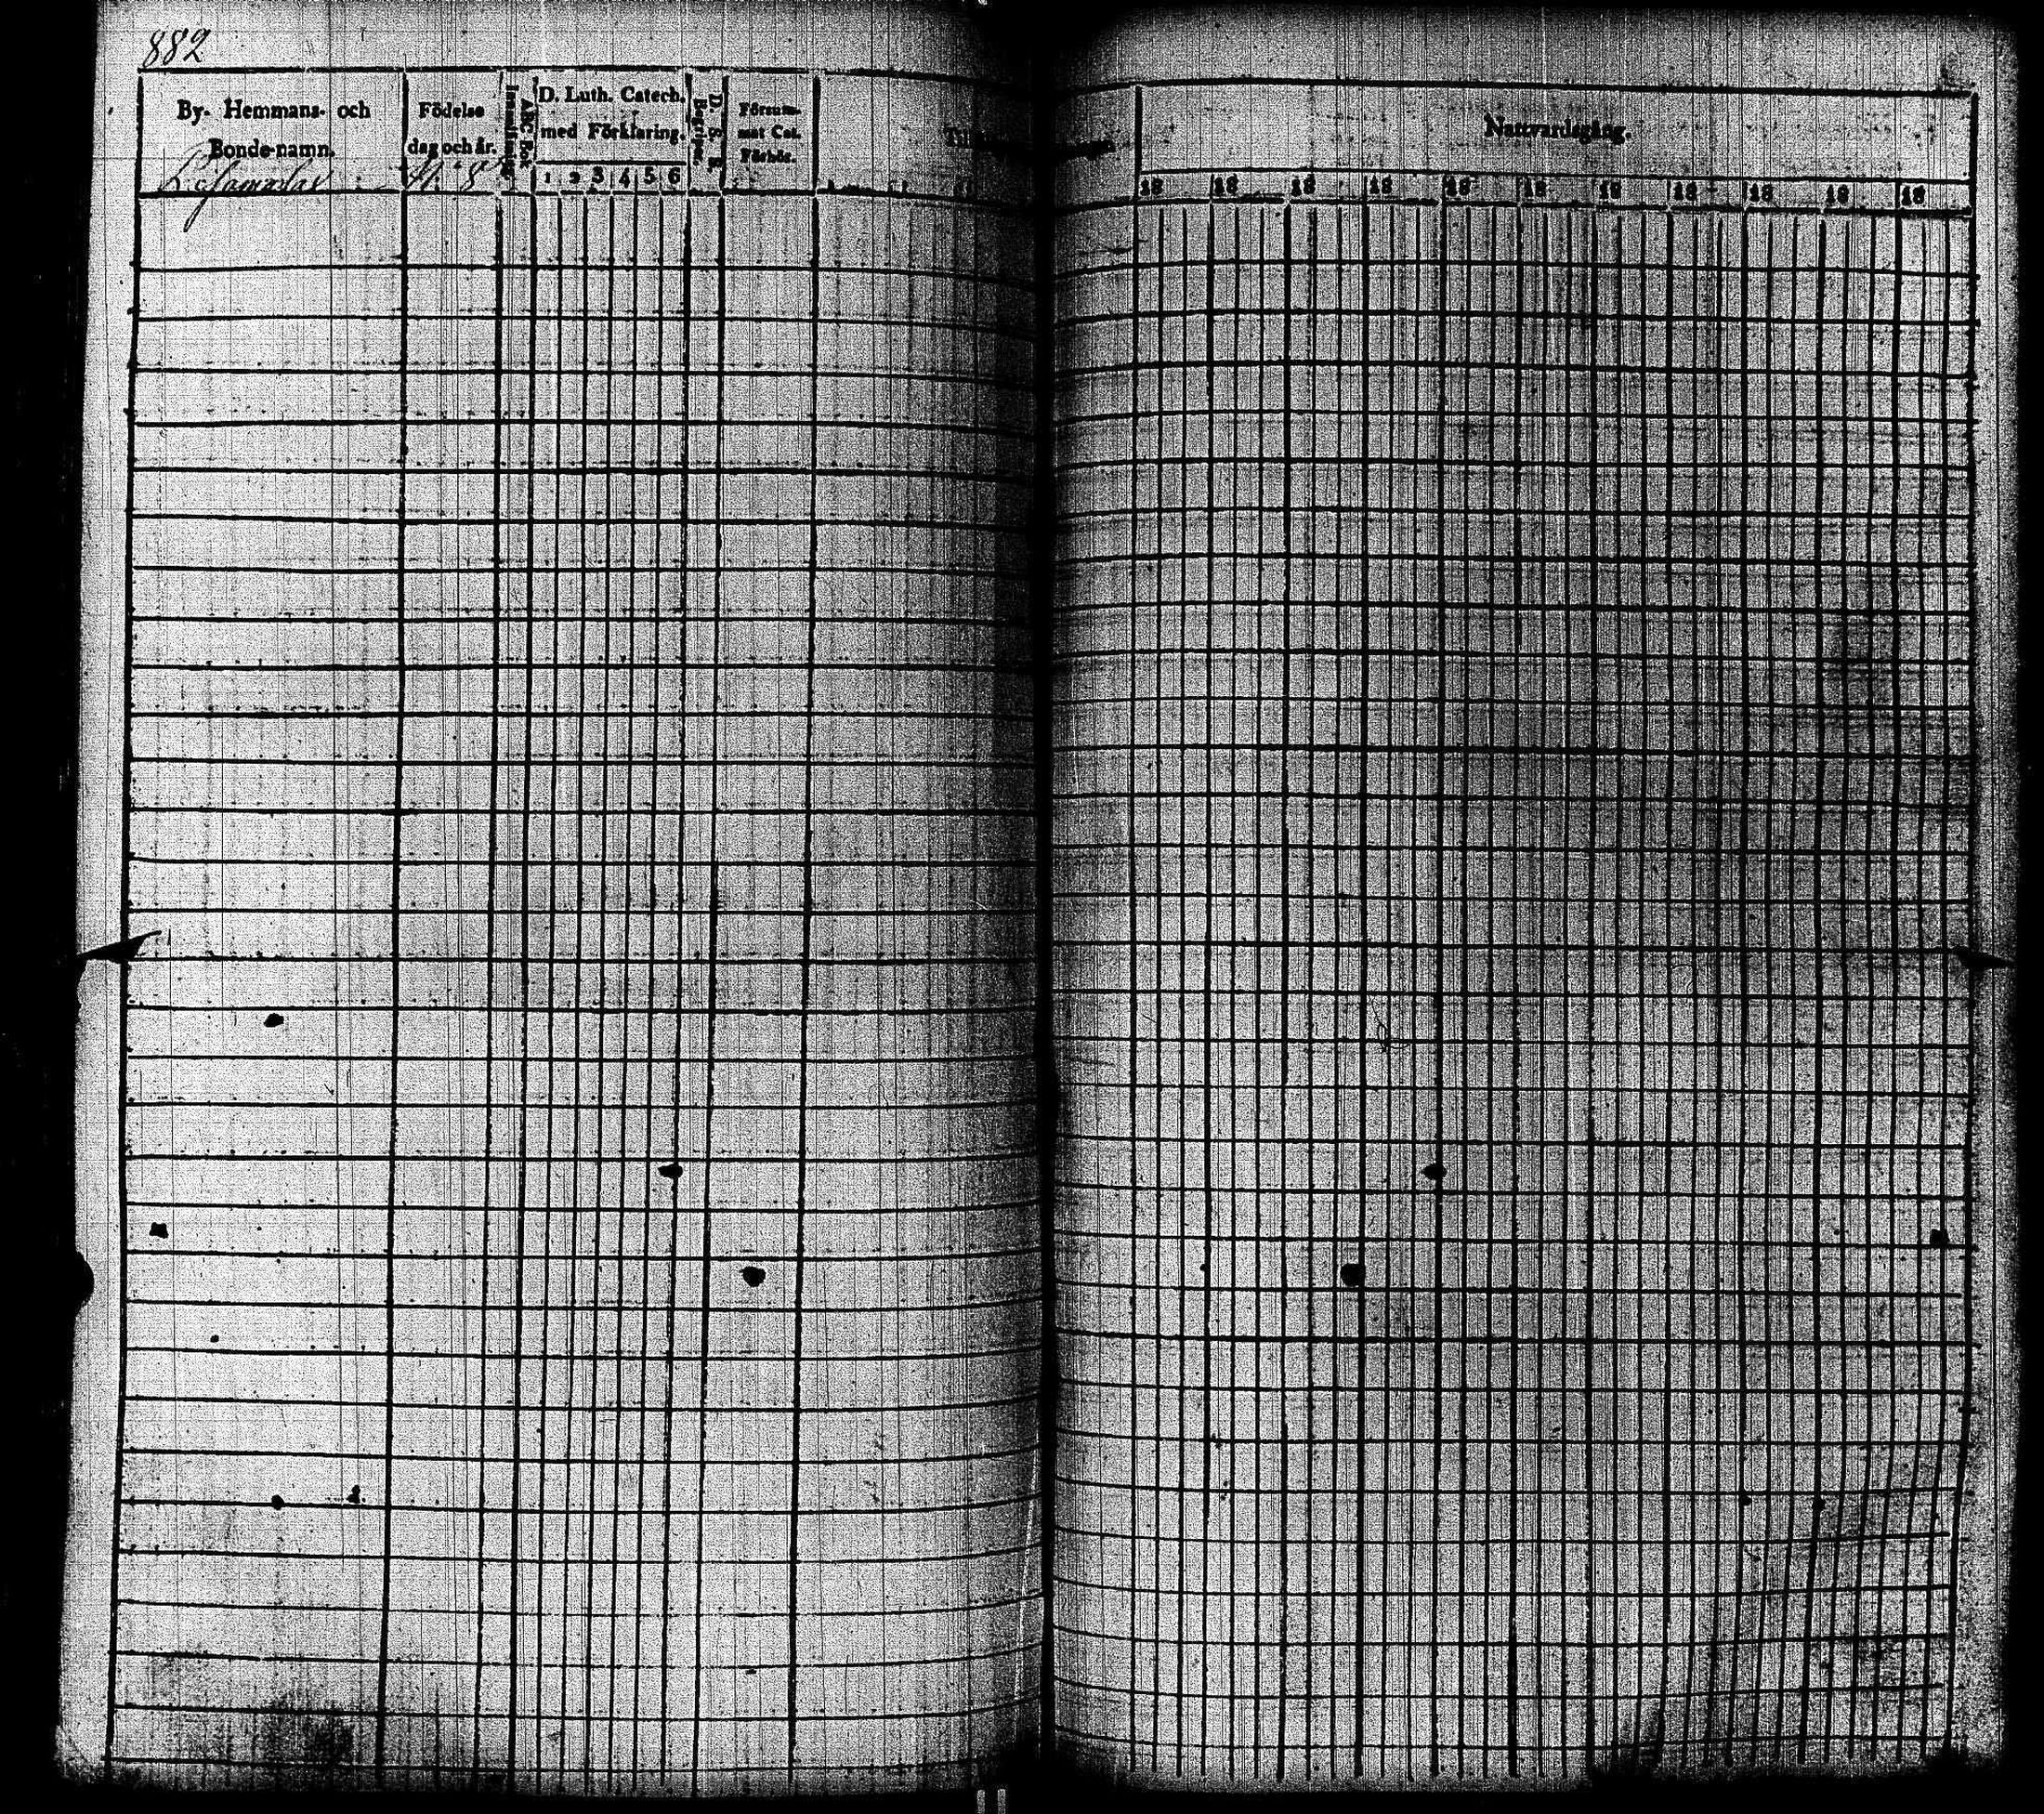 882
By- Hemmans- och
Bonde-namn.
Födelse
dag och år.
Innanläsning
ABC-Bok
D. Luth. Catech.
med Förklaring.
1 2 3 4 5 6
D. S. E.
Begrepp.
Försum-
mat Cat.
Förhör.
Nattvardsgång.
18 18 18 18 18 18 18 18 18 18 18